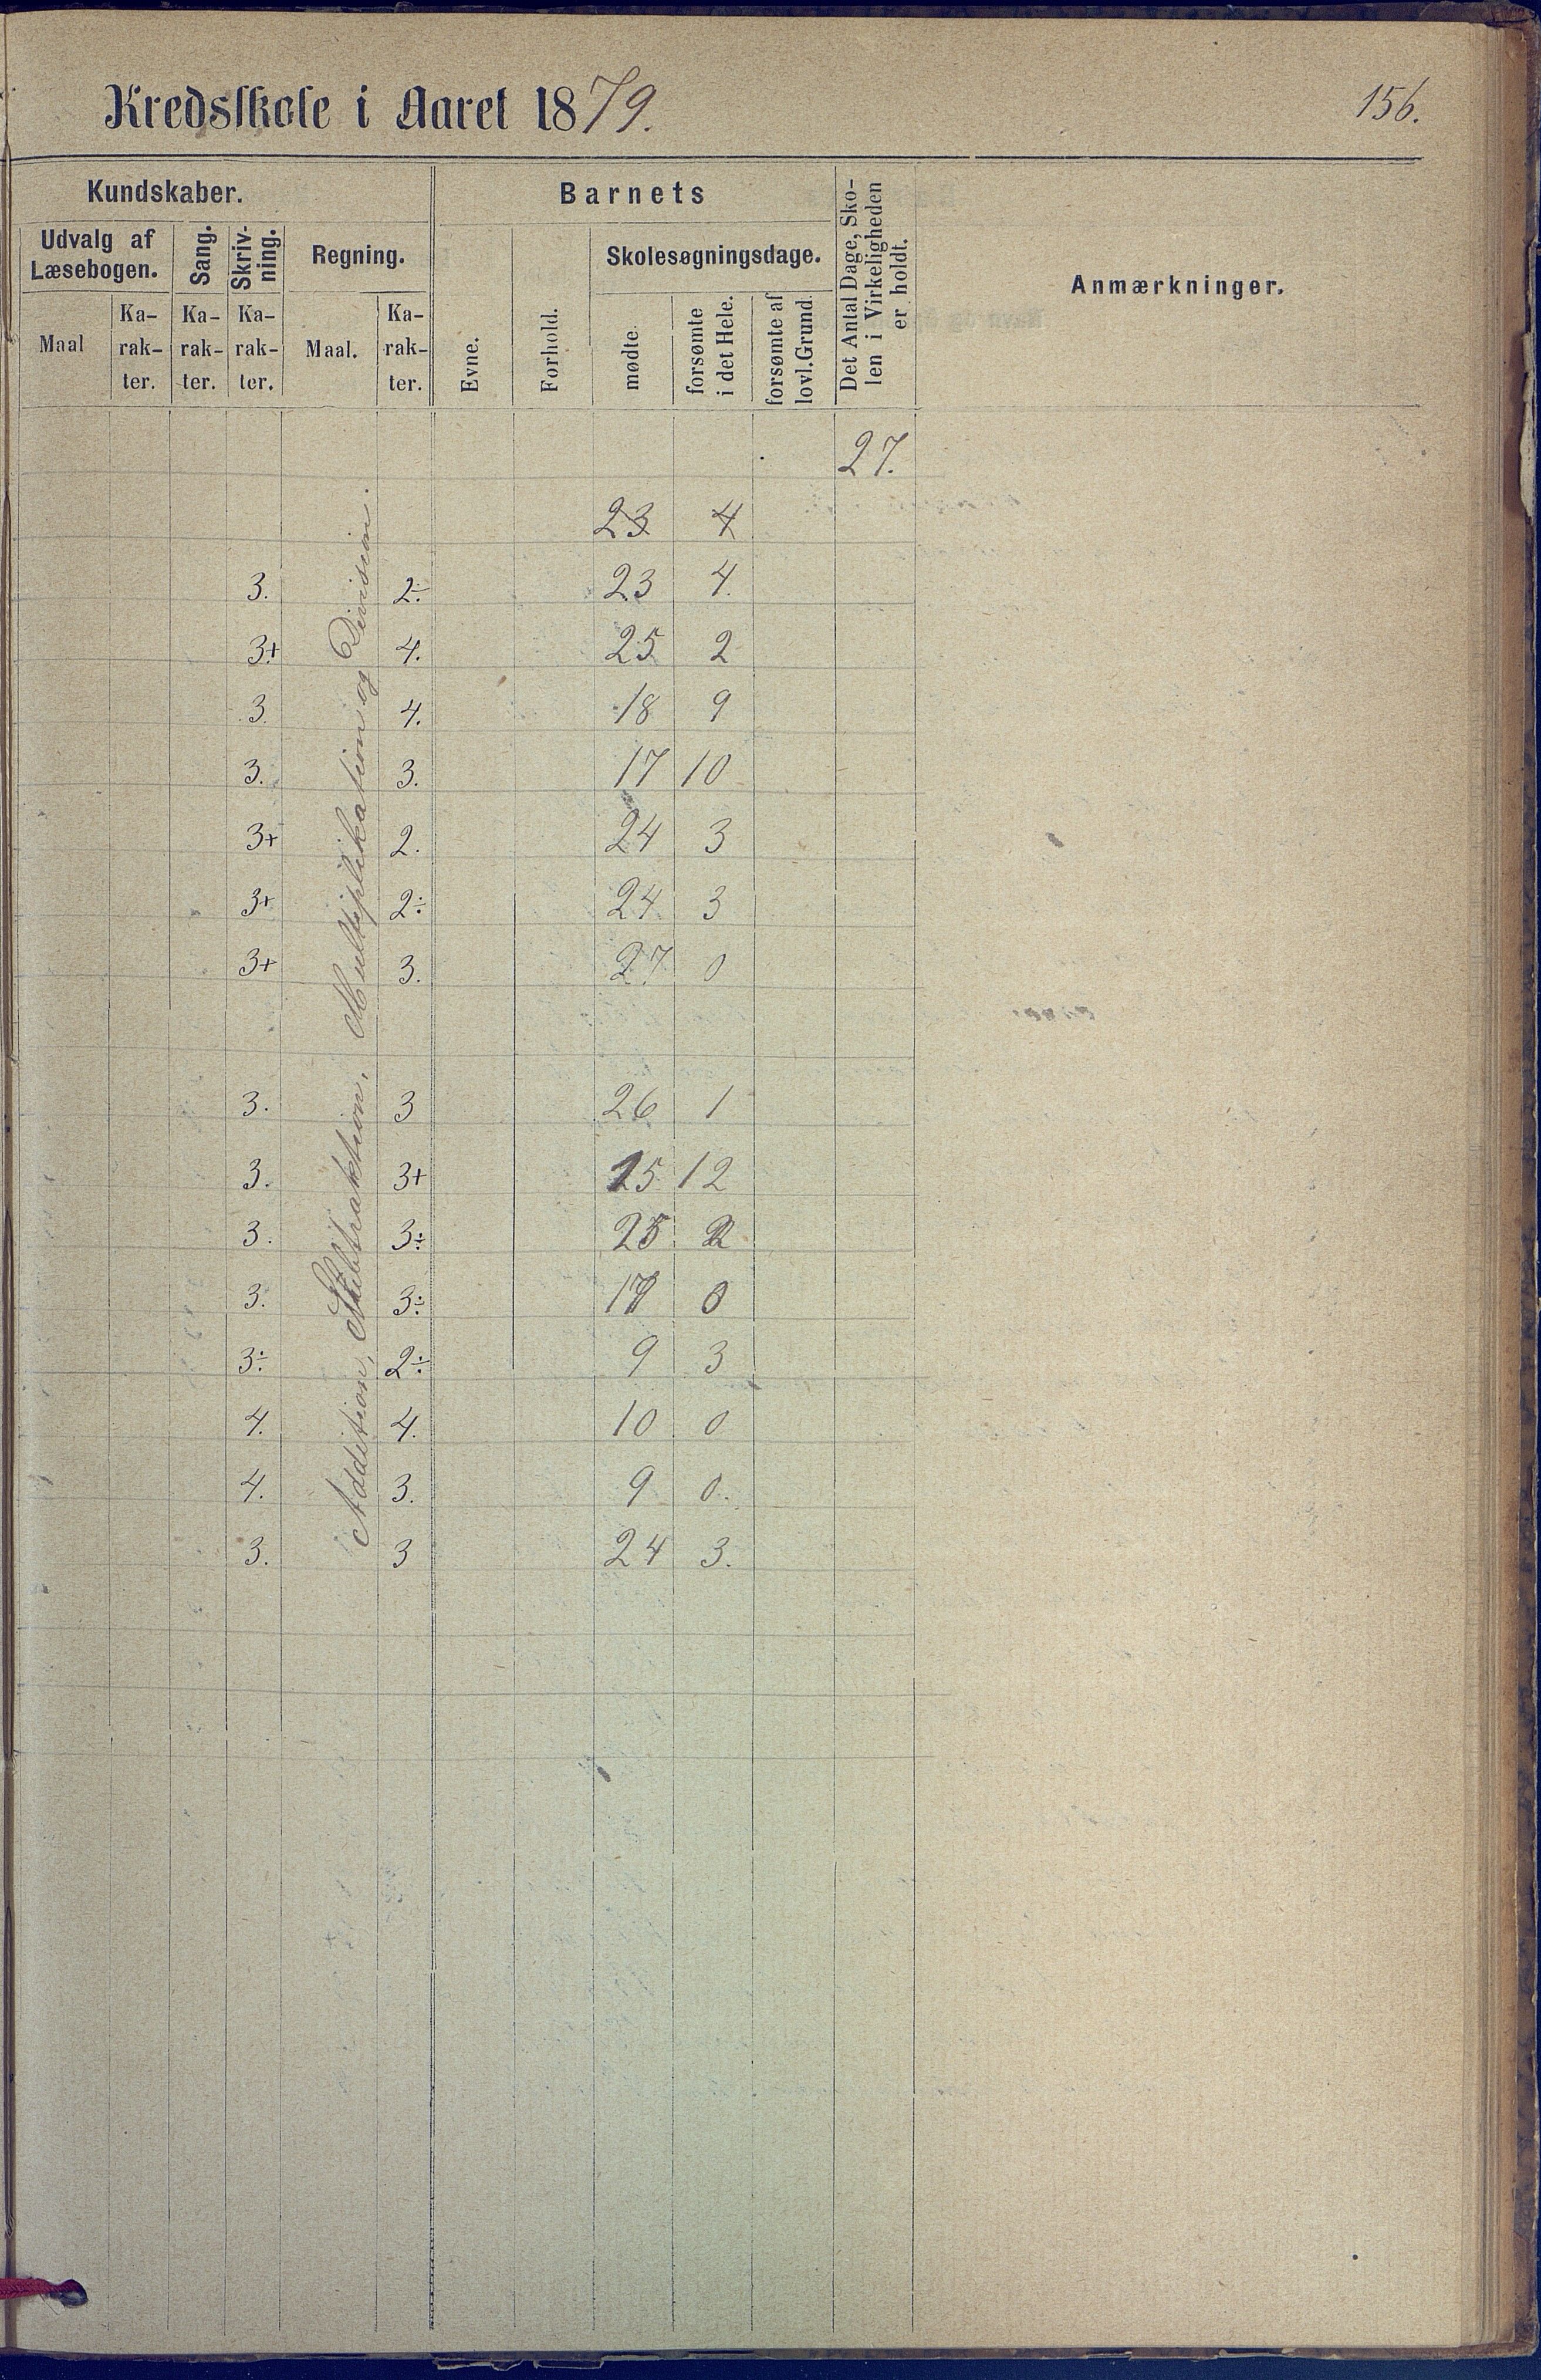 Kredsskole i Aaret 1879.
156.
Kundskaber.
Barnets
Det Antal Dage, Sko-
len i Virkeligheden
er holdt.
Anmærkninger.
Udvalg af
Læsebogen.
Sang.
Skriv-
ning.
Regning.
Evne.
Forhold.
Skolesøgningsdage.
Maal
Ka-
rak-
ter.
Ka-
rak-
ter.
Ka-
rak-
ter.
Maal.
Ka-
rak-
ter.
mødte
forsømte
i det Hele.
forsømte af
lovl. Grund.
27.
Addition, Subtraktion, Multiplikation og Division.
23 4
3. 2÷ 23 4.
3+ 4. 25 2
3. 4. 18 9
3. 3. 17 10
3+ 2. 24 3
3+ 2÷ 24 3
3+ 3. 27 0
3. 3 26 1
3. 3+ 15 12
3. 3÷ 25 2
3. 3÷ 17 0
3÷ 2÷ 9 3
4. 4. 10 0
4. 3. 9 0.
3. 3 24 3.